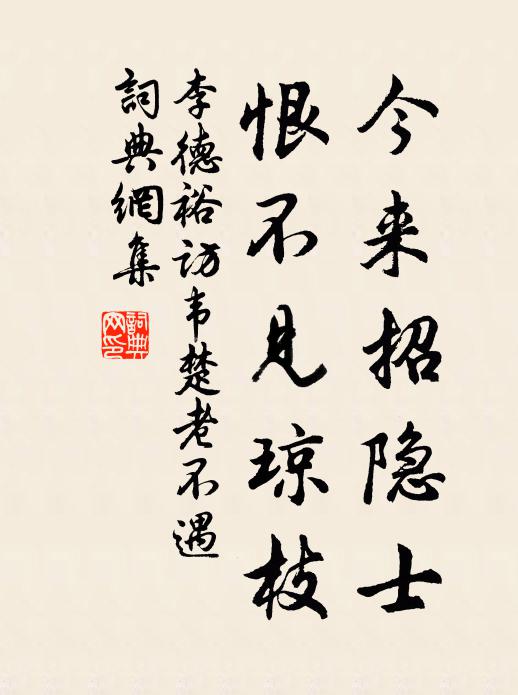 今来招隐士
恨不见琼枝
李德裕访韦楚老不遇
词典網集
詞典
网印